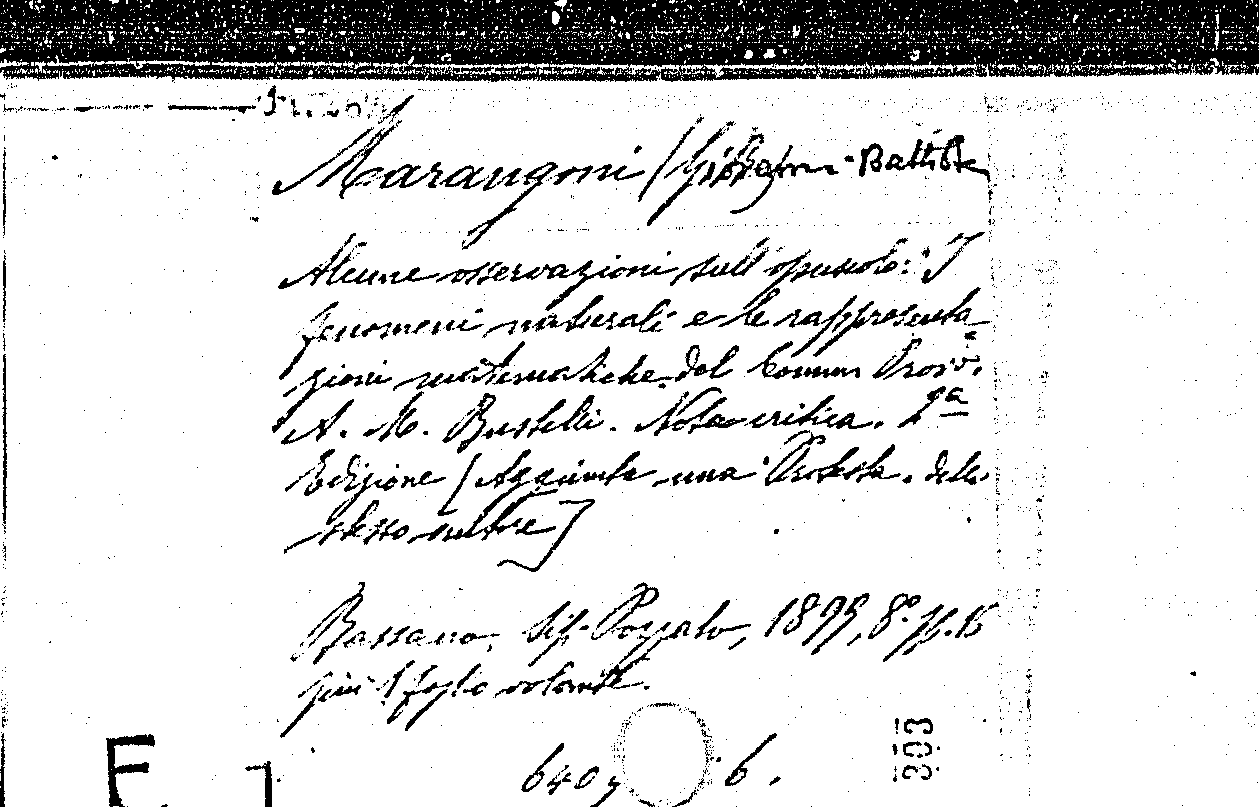 Marangoni (Giovanni-Battista
Alcune osservazioni sull'opuscolo: "I
fenomeni naturali e le rappresenta-
zioni matematiche" del Comm Prof.
A. M. Bustelli. Nota critica. 2ª
Edizione [Aggiunta una Protesta dello
stesso autore]
Bassano, Tip. Pozzato, 1899, 8° pp. 15
più 1 foglio volante.
640 6.
303
E